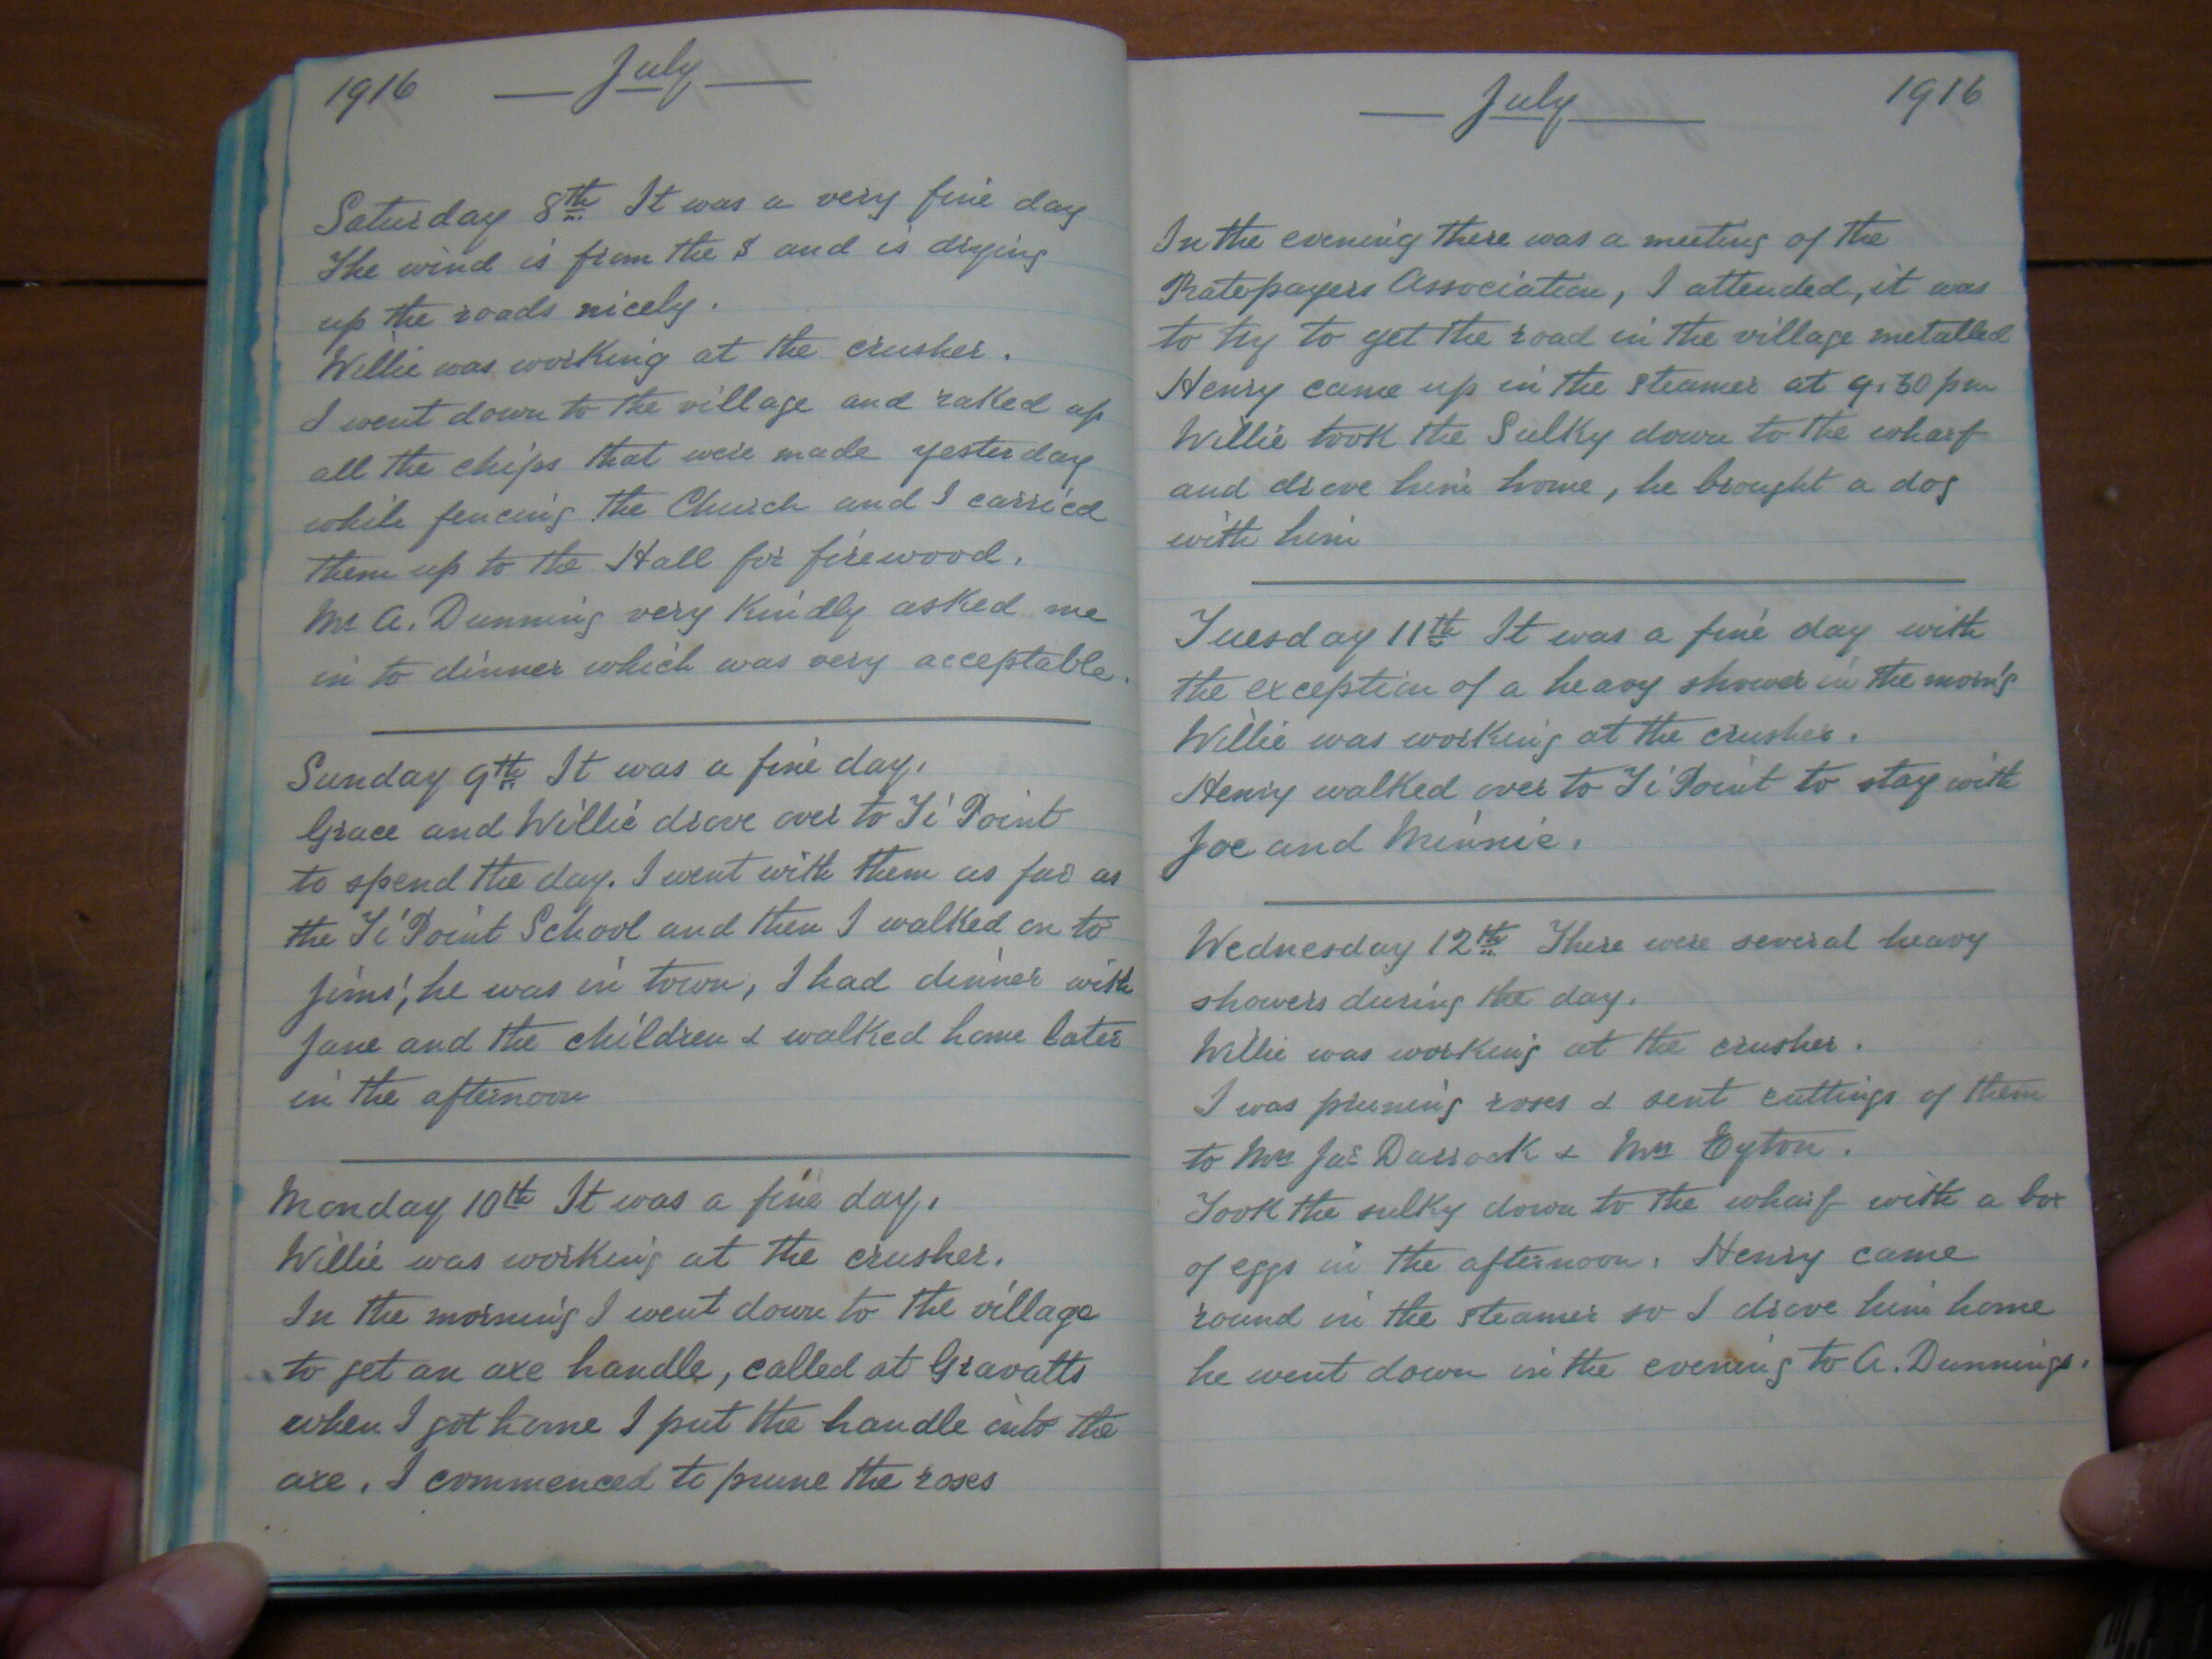 1916 July
Saturday 8th It was a very fine day
The wind is from the S and is drying
up the roads nicely.
Willie was working at the crusher.
I went down to the village and raked up
all the chips that were made yesterday
while fencing the Church and I carried
them up to the Hall for firewood.
Mr A. Dunning very kindly asked me
in to dinner which was very acceptable.
Sunday 9th It was a fine day.
Grace and Willie drove over to Ti Point
to spend the day. I went with them as far as
the Ti Point School and then I walked on to
Jims', he was in town, I had dinner with
Jane and the children & walked home later
in the afternoon
Monday 10th It was a fine day.
Willie was working at the crusher.
In the morning I went down to the village
to get an axe handle, called at Gravatts
when I got home I put the handle into the
axe. I commenced to prune the roses
July 1916
In the evening there was a meeting of the
Ratepayers Association, I attended, it was
to try to get the road in the village metalled
Henry came up in the steamer at 9.30 pm
Willie took the Sulky down to the wharf
and drove him home, he brought a dog
with him
Tuesday 11th It was a fine day with
the exception of a heavy shower in the morn'g
Willie was working at the crusher.
Henry walked over to Ti Point to stay with
Joe and Minnie.
Wednesday 12th There were several heavy
showers during the day.
Willie was working at the crusher.
I was pruning roses & sent cuttings of them
to Mrs Jas Darrock & Mrs Eyton.
Took the sulky down to the wharf with a box
of eggs in the afternoon. Henry came
round in the steamer so I drove him home
he went down in the evening to A. Dunnings.